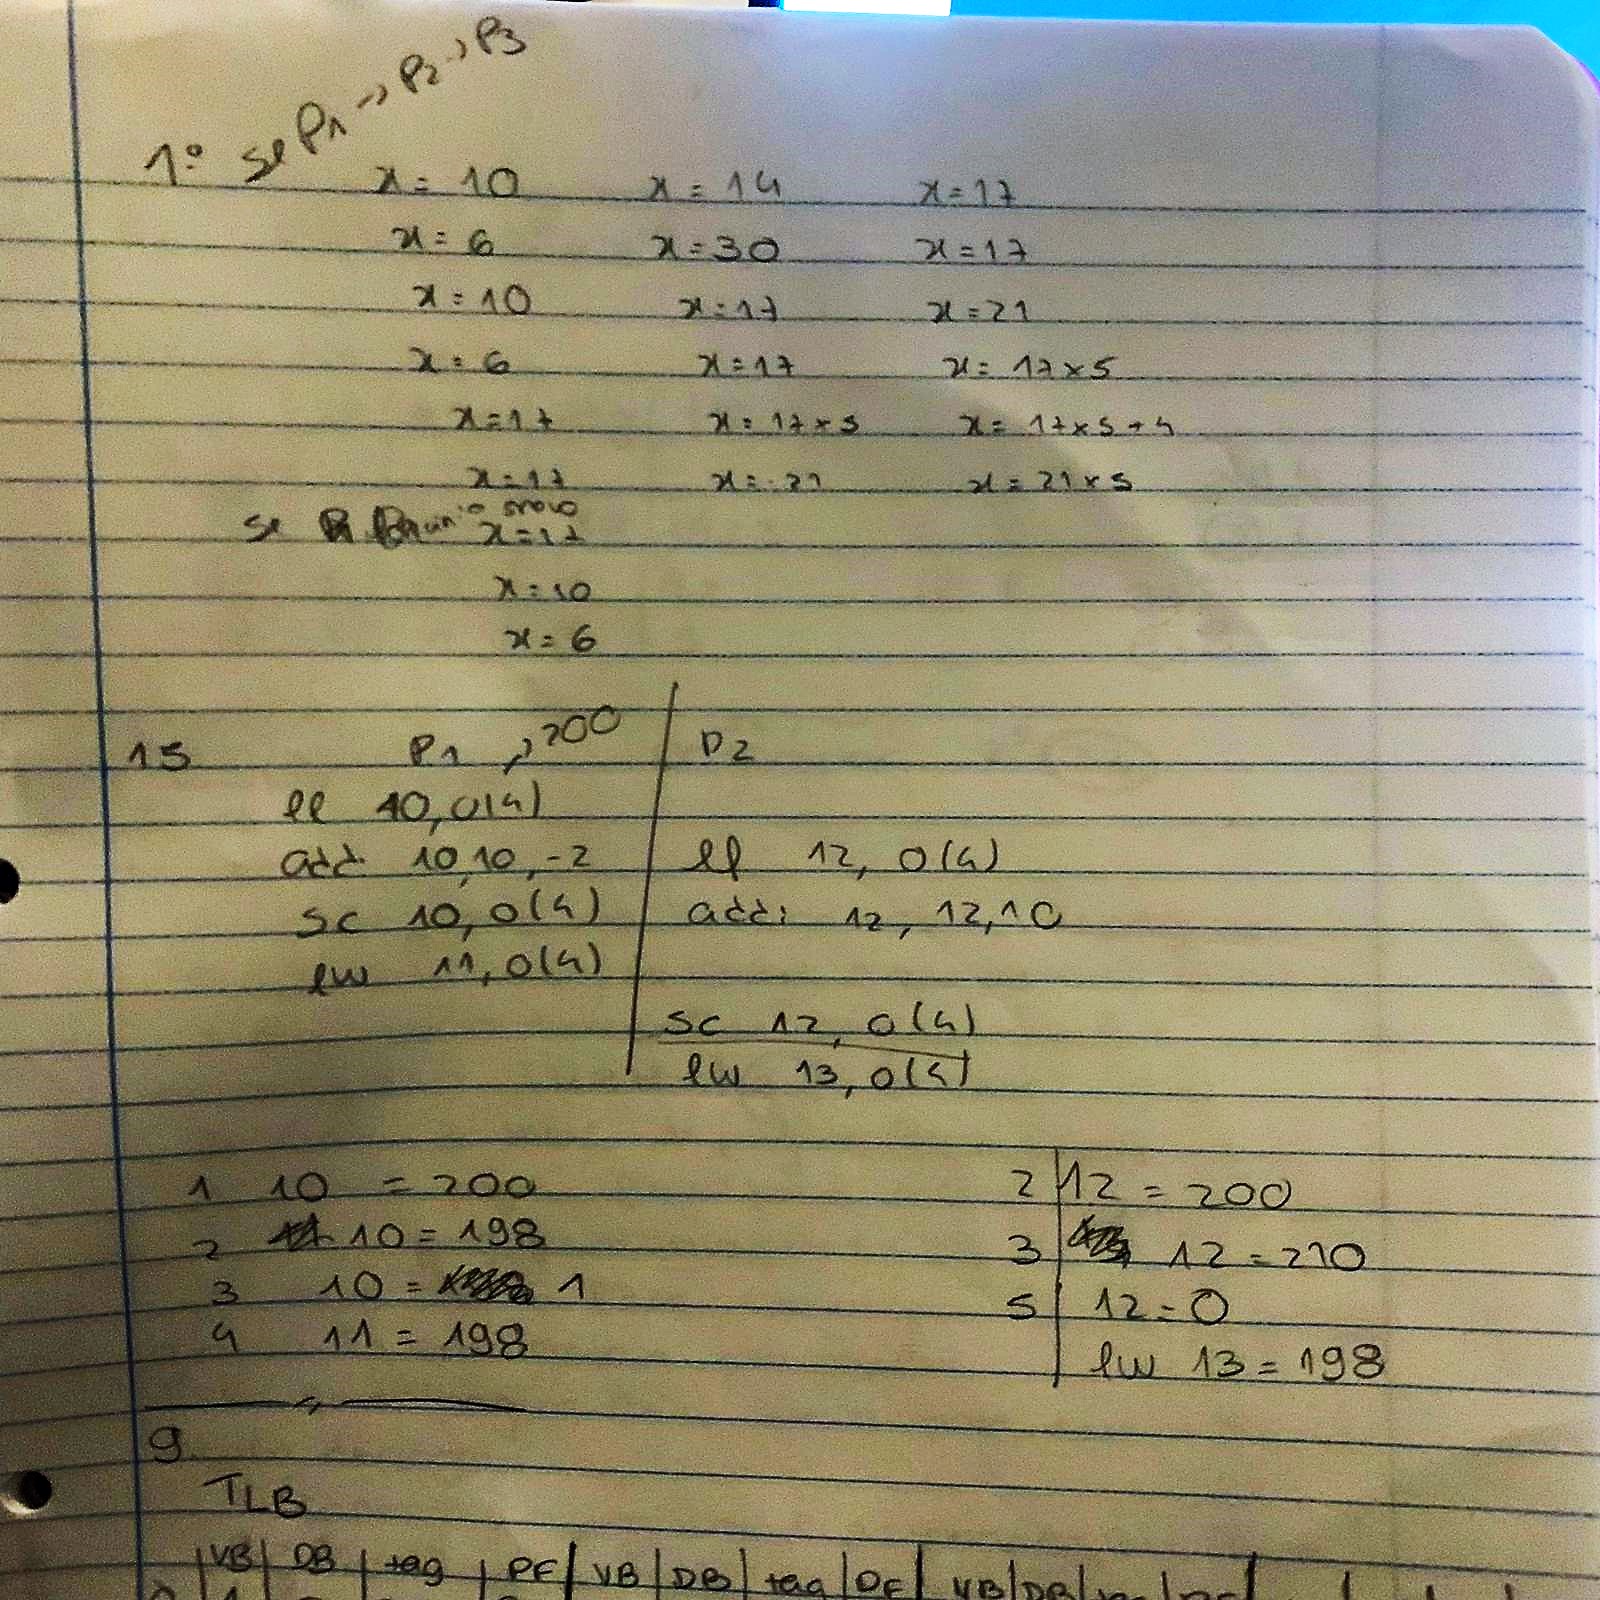 1º se P1 → P2 → P3
x = 10 x = 14 x = 17
x = 6 x = 30 x = 17
x = 10 x = 17 x = 21
x = 6 x = 17 x = 17 x 5
x = 17 x = 17 x 5 x = 17 x 5 + 4
x = 17 x = 21 x = 21 x 5
se
x = 17
x = 10
x = 6
15 P1 → 200 P2
ll 10, 0(4)
add. 10, 10, -2 ll 12, 0(4)
sc 10, 0(4) addi 12, 12, 10
lw 11, 0(4)
sc 12, 0(4)
lw 13, 0(4)
1 10 = 200 2 12 = 200
2 10 = 198 3 12 = 210
3 10 = 1 5 12 = 0
4 11 = 198 lw 13 = 198
9
TLB
VB DB tag PF VB DB tag PF VB DB